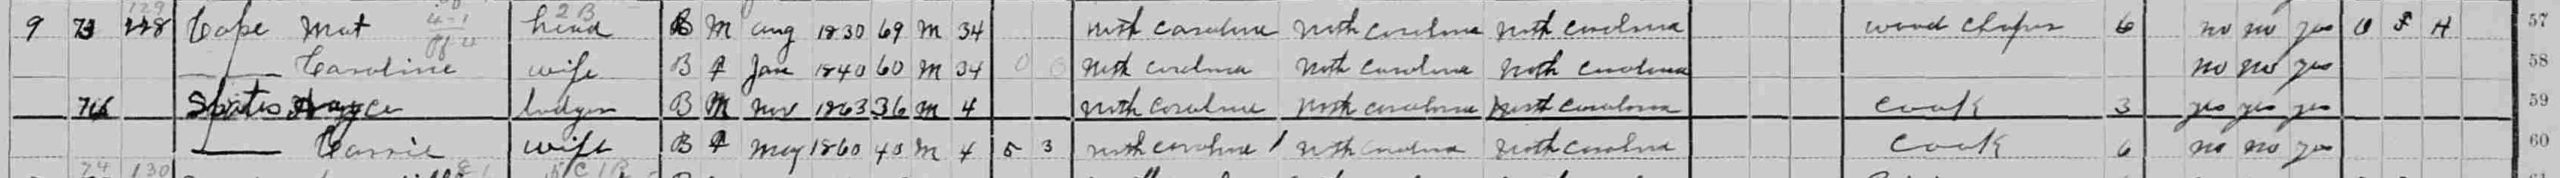 9 73 128 129 Cape Mat head 2B B M aug 1830 69 M 34 north carolina north carolina north carolina wood choper 6 no no yes O F H 57
Caroline wife B f Jan 1840 60 M 34 0 0 north carolina north carolina north carolina no no yes 58
lodger B M nov 1863 36 M 4 north carolina north carolina north carolina cook 3 yes yes yes 59
Carrie wife B f may 1860 40 M 4 5 3 north carolina north carolina north carolina cook 6 no no yes 60
74 130